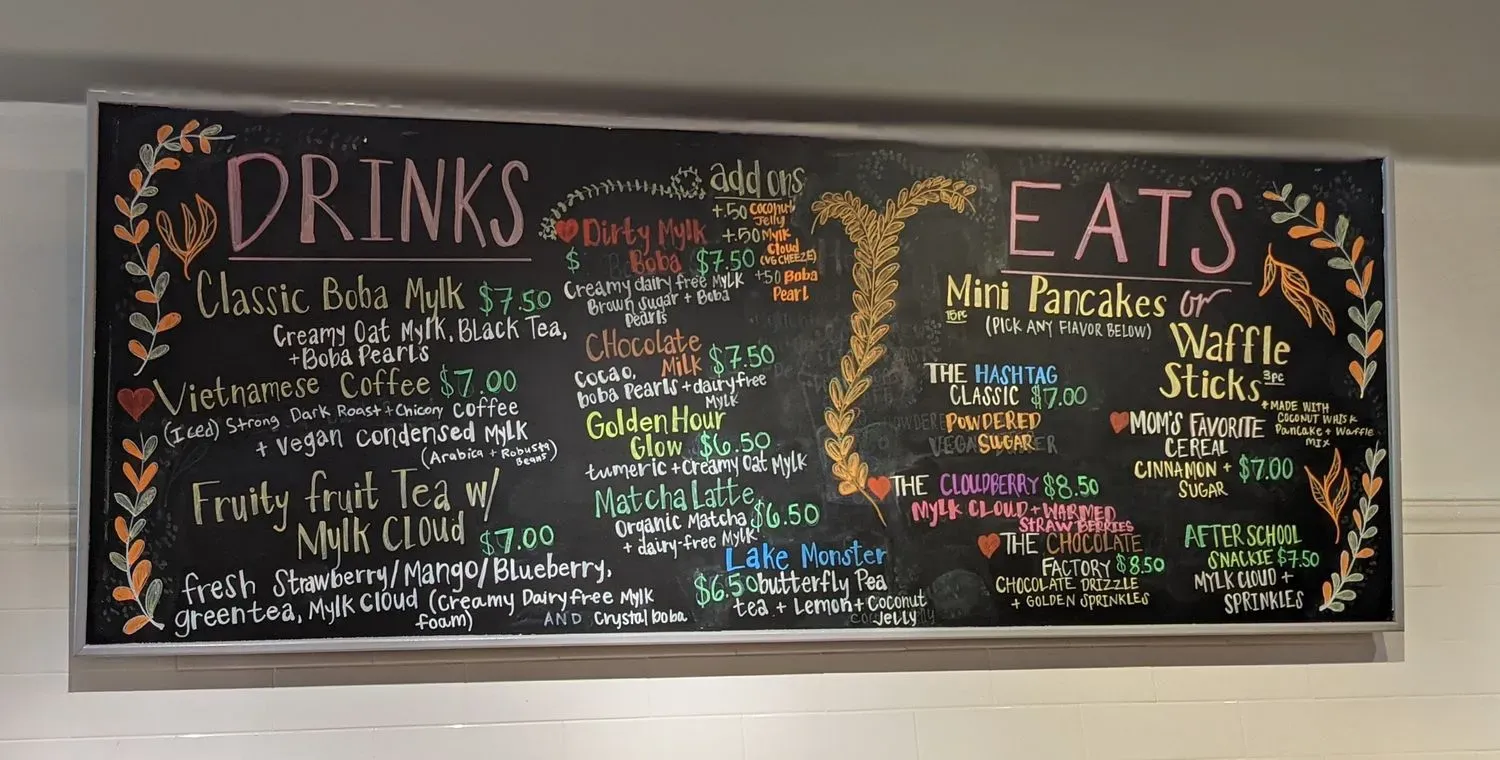 DRINKS
Classic Boba Mylk $7.50
Creamy Oat Mylk, Black Tea,
+Boba Pearls
Vietnamese Coffee $7.00
(Iced) Strong Dark Roast + Chicory Coffee
+ Vegan Condensed Mylk
(Arabica + Robusta
Beans)
Fruity fruit Tea w/
Mylk Cloud $7.00
fresh Strawberry/Mango/Blueberry,
green tea, Mylk Cloud (Creamy Dairy free Mylk
foam) AND Crystal boba
add ons
+.50 Coconut
Jelly
+.50 Mylk
Cloud
(VG CHEEZE)
+50 Boba
Pearl
Dirty Mylk
$ Boba $7.50
Creamy dairy free Mylk
Brown sugar + Boba
Pearls
CHocolate
Milk $7.50
Cocao,
boba Pearls + dairy free
Mylk
Golden Hour
Glow $6.50
tumeric + Creamy Oat Mylk
Matcha Latte
Organic Matcha $6.50
+ dairy-free Mylk
Lake Monster
$6.50 butterfly Pea
tea + Lemon + Coconut
Jelly
EATS
Mini Pancakes or
15pc
(PICK ANY FLAVOR BELOW)
Waffle
Sticks 3pc
*MADE WITH
COCONUT WHISK
Pancake + Waffle
MIX
THE HASHTAG
CLASSIC $7.00
POWDERED
SUGAR
MOM'S FAVORITE
CEREAL
CINNAMON + $7.00
SUGAR
THE CLOUDBERRY $8.50
MYLK CLOUD + WARMED
STRAWBERRIES
THE CHOCOLATE
FACTORY $8.50
CHOCOLATE DRIZZLE
+ GOLDEN SPRINKLES
AFTER SCHOOL
SNACKIE $7.50
MYLK CLOUD +
SPRINKLES